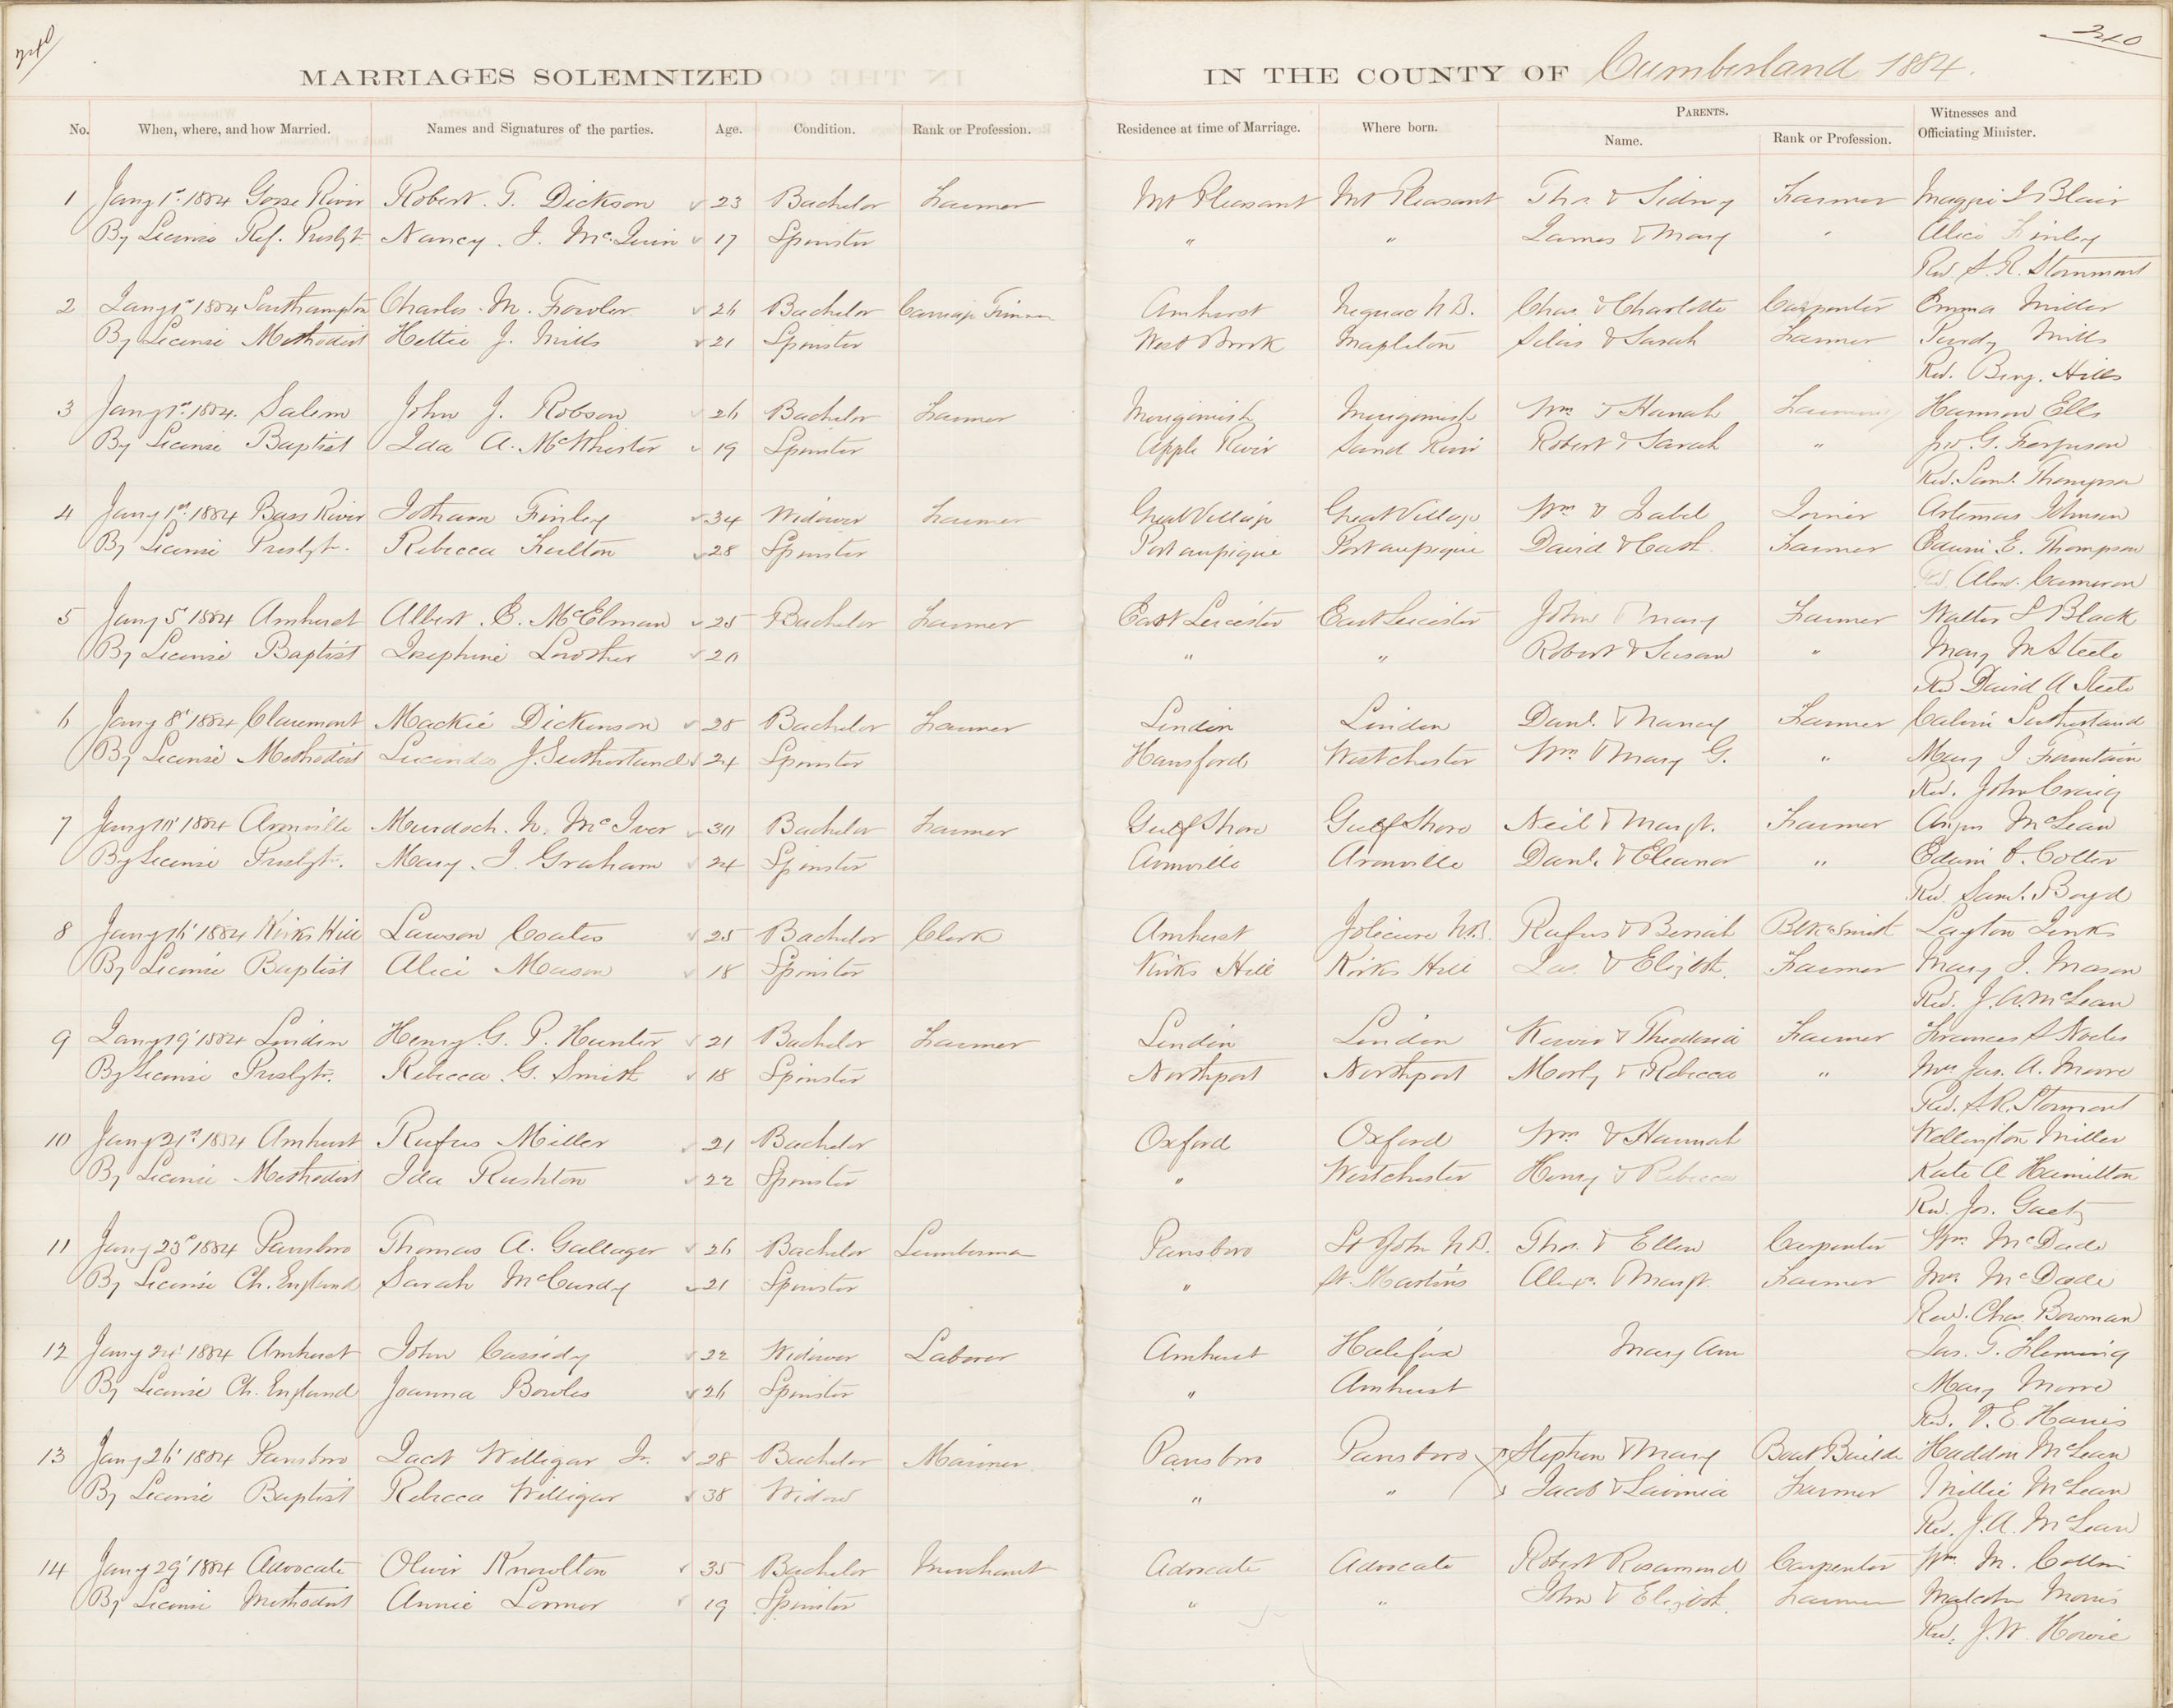 240
240
MARRIAGES SOLEMNIZED IN THE COUNTY OF Cumberland 1884.
No. When, where, and how Married. Names and Signatures of the parties. Age. Condition. Rank or Profession. Residence at time of Marriage. Where born. PARENTS. Name. Rank or Profession. Witnesses and Officiating Minister.
1 Jany 1st 1884 River Robert. T. Dickson 23 Bachelor Farmer Mt Pleasant Mt Pleasant Thos & Sidney Farmer Blair
By License Ref. Presbyt Nancy. J. 17 Spinster " " James & Mary " Alice Finley
Rev. S. R. Stormmont
2 Jany 1st 1884 Southampton Charles. M. Fowler 26 Bachelor Amherst Neguac N.B. Chas. & Charlotte Carpenter Emma
By License Methodist Hettie J. Mills 21 Spinster West Brook Mapleton Silas & Sarah Farmer Purdy Mills
Rev. Benj. Hills
3 Jany 1st 1884. Salem John J. Robson 26 Bachelor Farmer Merigomish Merigomish Wm & Hanah Farmer Ells
By License Baptist Ida A. McWhirter 19 Spinster Apple River Sand River Robert & Sarah " Jno. G. Ferguson
Rev. Saml. Thompson
4 Jany 1st 1884 Bass River Jotham Finley 34 Widower Farmer Great Village Great Village Wm & Isabel Joiner Artemas Johnson
By License Presbyt. Rebecca Fulton 28 Spinster Portaupique Portaupique David & Cath. Farmer Edwin E. Thompson
Rev. Alex. Cameron
5 Jany 5 1884 Amherst Albert. E. McElman 25 Bachelor Farmer East Leicester East Leicester John & Mary Farmer Walter S Black
By License Baptist Josephine Lowther 20 " " Robert & Susan " Mary M Steele
Rev David A Steele
6 Jany 8' 1884 Claremont Mackie Dickinson 28 Bachelor Farmer Linden Linden Danl. & Nancy Farmer Calvin Sutherland
By License Methodist Lucinda J. Sutherland 24 Spinster Hansford Westchester Wm. & Mary G. " Mary J Fountain
Rev. John Craig
7 Jany 10' 1884 Murdoch. N. McIver 30 Bachelor Farmer Gulf Shore Gulf Shore Neil & Margt. Farmer Angus McLean
By License Presbyt. Mary. J. Graham 24 Spinster Danl. & Eleanor " Edwin Colter
Rev. Saml. Boyd
8 Jany 16' 1884 Kirks Hill Lawson Coates 25 Bachelor Clerk Amherst Jolicure N.B. Rufus & Blk Smith Layton Jenks
By License Baptist Alice Mason 18 Spinster Kirks Hill Kirks Hill Jas. & Elizbth. Farmer Mary J. Mason
Rev. J. A. McLean
9 Jany 19' 1884 Linden Henry. G. P. Hunter 21 Bachelor Farmer Linden Linden & Farmer Frances S
By License Presbytr. Rebecca. G. Smith 18 Spinster Northport Northport & Rebecca " Mrs Jas. A. Moore
Rev. S. R. Stormont
10 Jany 21st 1884 Amherst Rufus Miller 21 Bachelor Oxford Oxford Wm & Hannah Wellington Miller
By License Methodist Ida Rushton 22 Spinster " Westchester Henry & Rebecca Kate A Hamilton
Rev. Jos. Gaetz
11 Jany 23d 1884 Parrsboro Thomas A. Gallager 26 Bachelor Lumberman Parrsboro St John N.B. Thos. & Ellen Carpenter Wm. McDade
By License Ch. England Sarah McCurdy 21 Spinster " St. Martins Alexr. & Margt. Farmer Mrs McDade
Rev. Chas. Bowman
12 Jany 24' 1884 Amherst John Cassidy 22 Widower Laborer Amherst Halifax Mary Ann Jas. T. Fleming
By License Ch. England Joanna Bowles 26 Spinster " Amherst Mary Moore
Rev. V. E. Harris
13 Jany 26' 1884 Parrsboro Jacob Willigar Jr. 28 Bachelor Mariner Parrsboro Parrsboro Stephen & Mary Boat Builder Haddon McLean
By License Baptist Rebecca Willigar 38 Widow " " Jacob & Lavinia Farmer Millie McLean
Rev. J. A. McLean
14 Jany 29' 1884 Advocate Oliver Knowlton 35 Bachelor Merchant Advocate Advocate Robert Rosamond Carpenter Wm. M.
By License Methodist Annie 19 Spinster " " John & Elizbth. Farmer Malcolm Morris
Rev. J. W. Howie